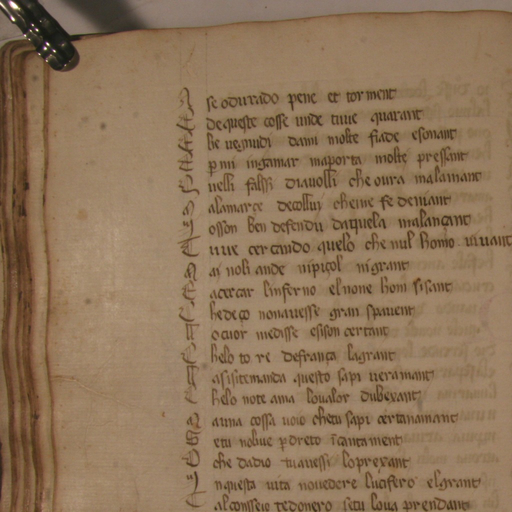 se odurado pene et torment
de queste cosse uide tiue quarant
he uegnudi dami molte fiade esonant
p mi ingamar maporta molte pressant
uelli falssi diauolli che oura malamant
alamarce decollui cheme fe deuiant
osson ben defendu daquela malançant
uiue cercando quelo che nul homo uiuant
ai noli ande nipiçol nigrant
acercar linferno elnone hom si sant
hedeço nonauesse gran spauent
ocuor medisse esison certant
helo to re defrança lagrant
asisitemanda questo sapi ueramant
helo note ama loualor dubexant
auna cossa uoio chetu sapi certanamant
etu noliue p dreto icantament
che dadio tuauessi loprexant
nquesta uita nouedere lucifero elgrant
alconsseio tedonero setu loua prendant